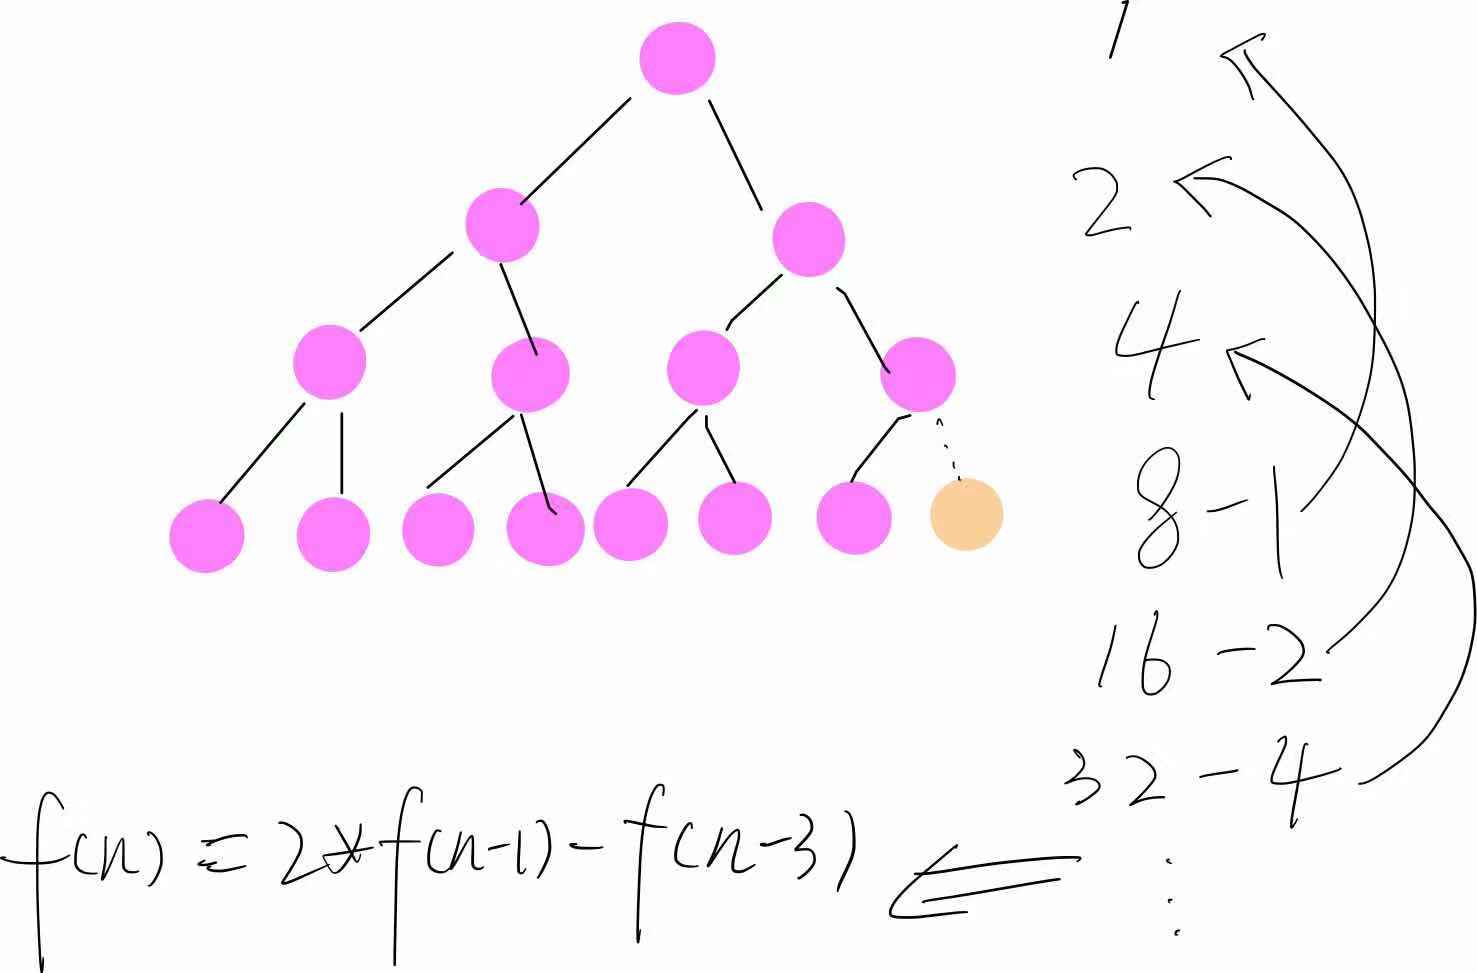 1
2
4
8-1
16-2
32-4
f(n)=2*f(n-1)-f(n-3)